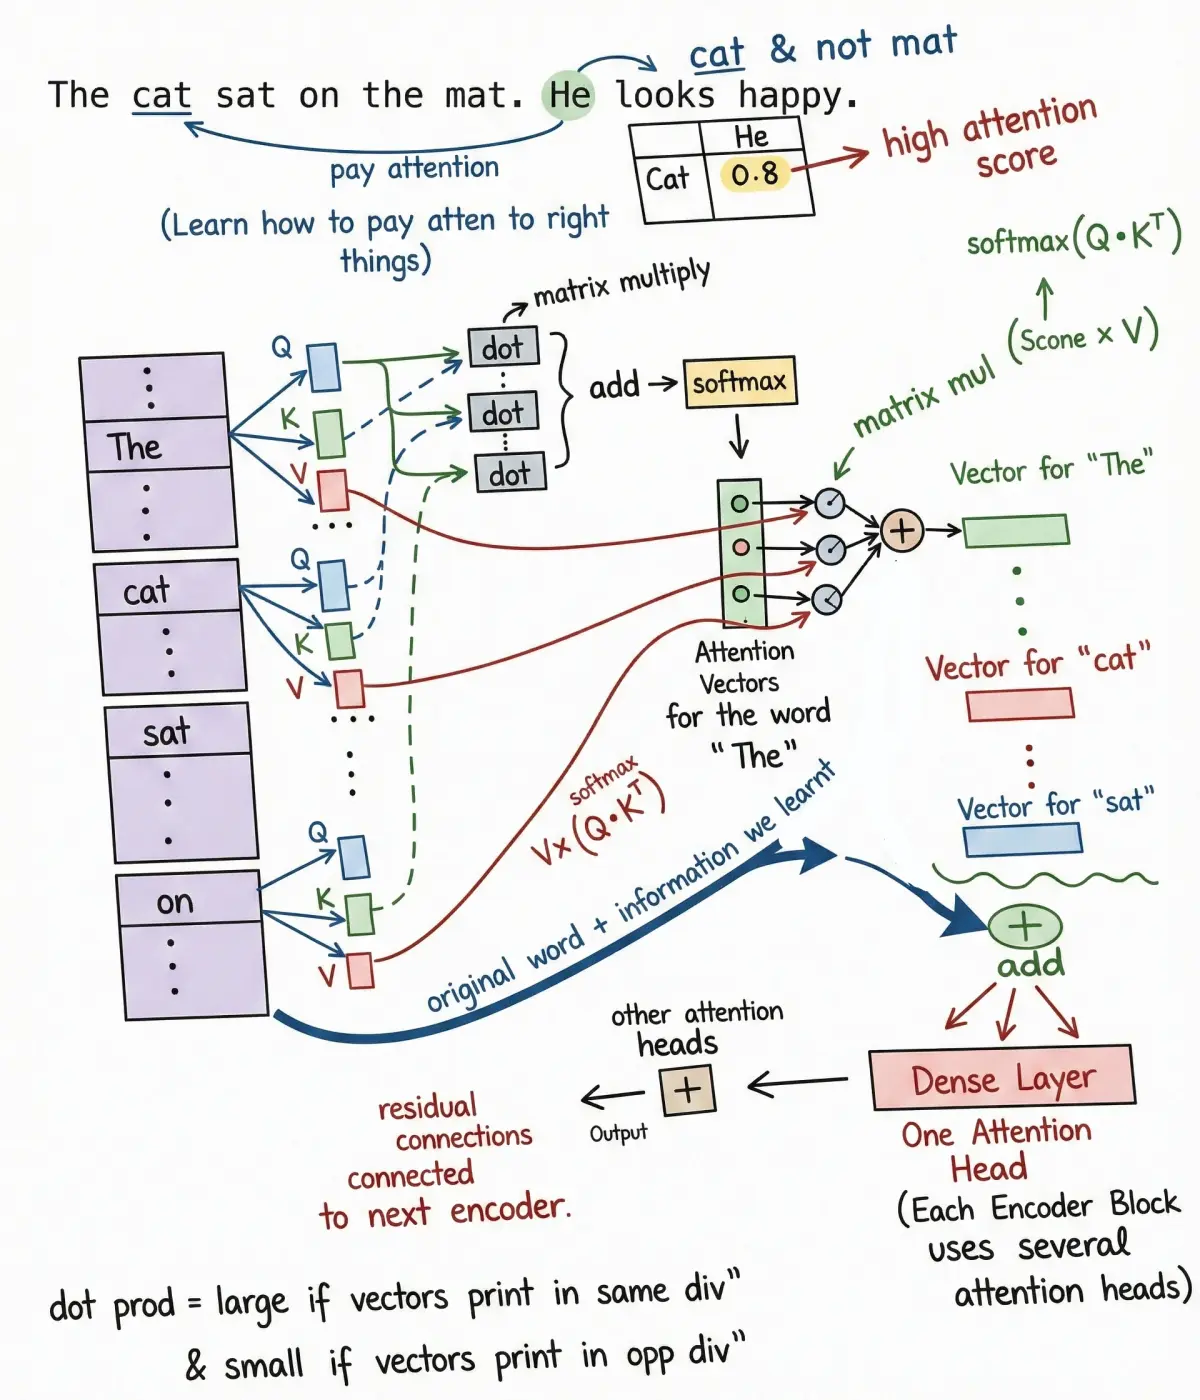 cat & not mat
The cat sat on the mat. He looks happy.
pay attention
(Learn how to pay atten to right
things)
He
Cat 0.8
high attention
score
softmax(Q•Kᵀ)
(Scone × V)
matrix mul
matrix multiply
Q
K
V
dot
dot
dot
add
softmax
The
...
Q
K
V
...
cat
Q
K
V
sat
on
Attention
Vectors
for the word
"The"
Vector for "The"
Vector for "cat"
Vector for "sat"
softmax
V×(Q•Kᵀ)
original word + information we learnt
+
+
add
Dense Layer
One Attention
Head
(Each Encoder Block
uses several
attention heads)
other attention
heads
+
Output
residual
connections
connected
to next encoder.
dot prod = large if vectors print in same div"
& small if vectors print in opp div"